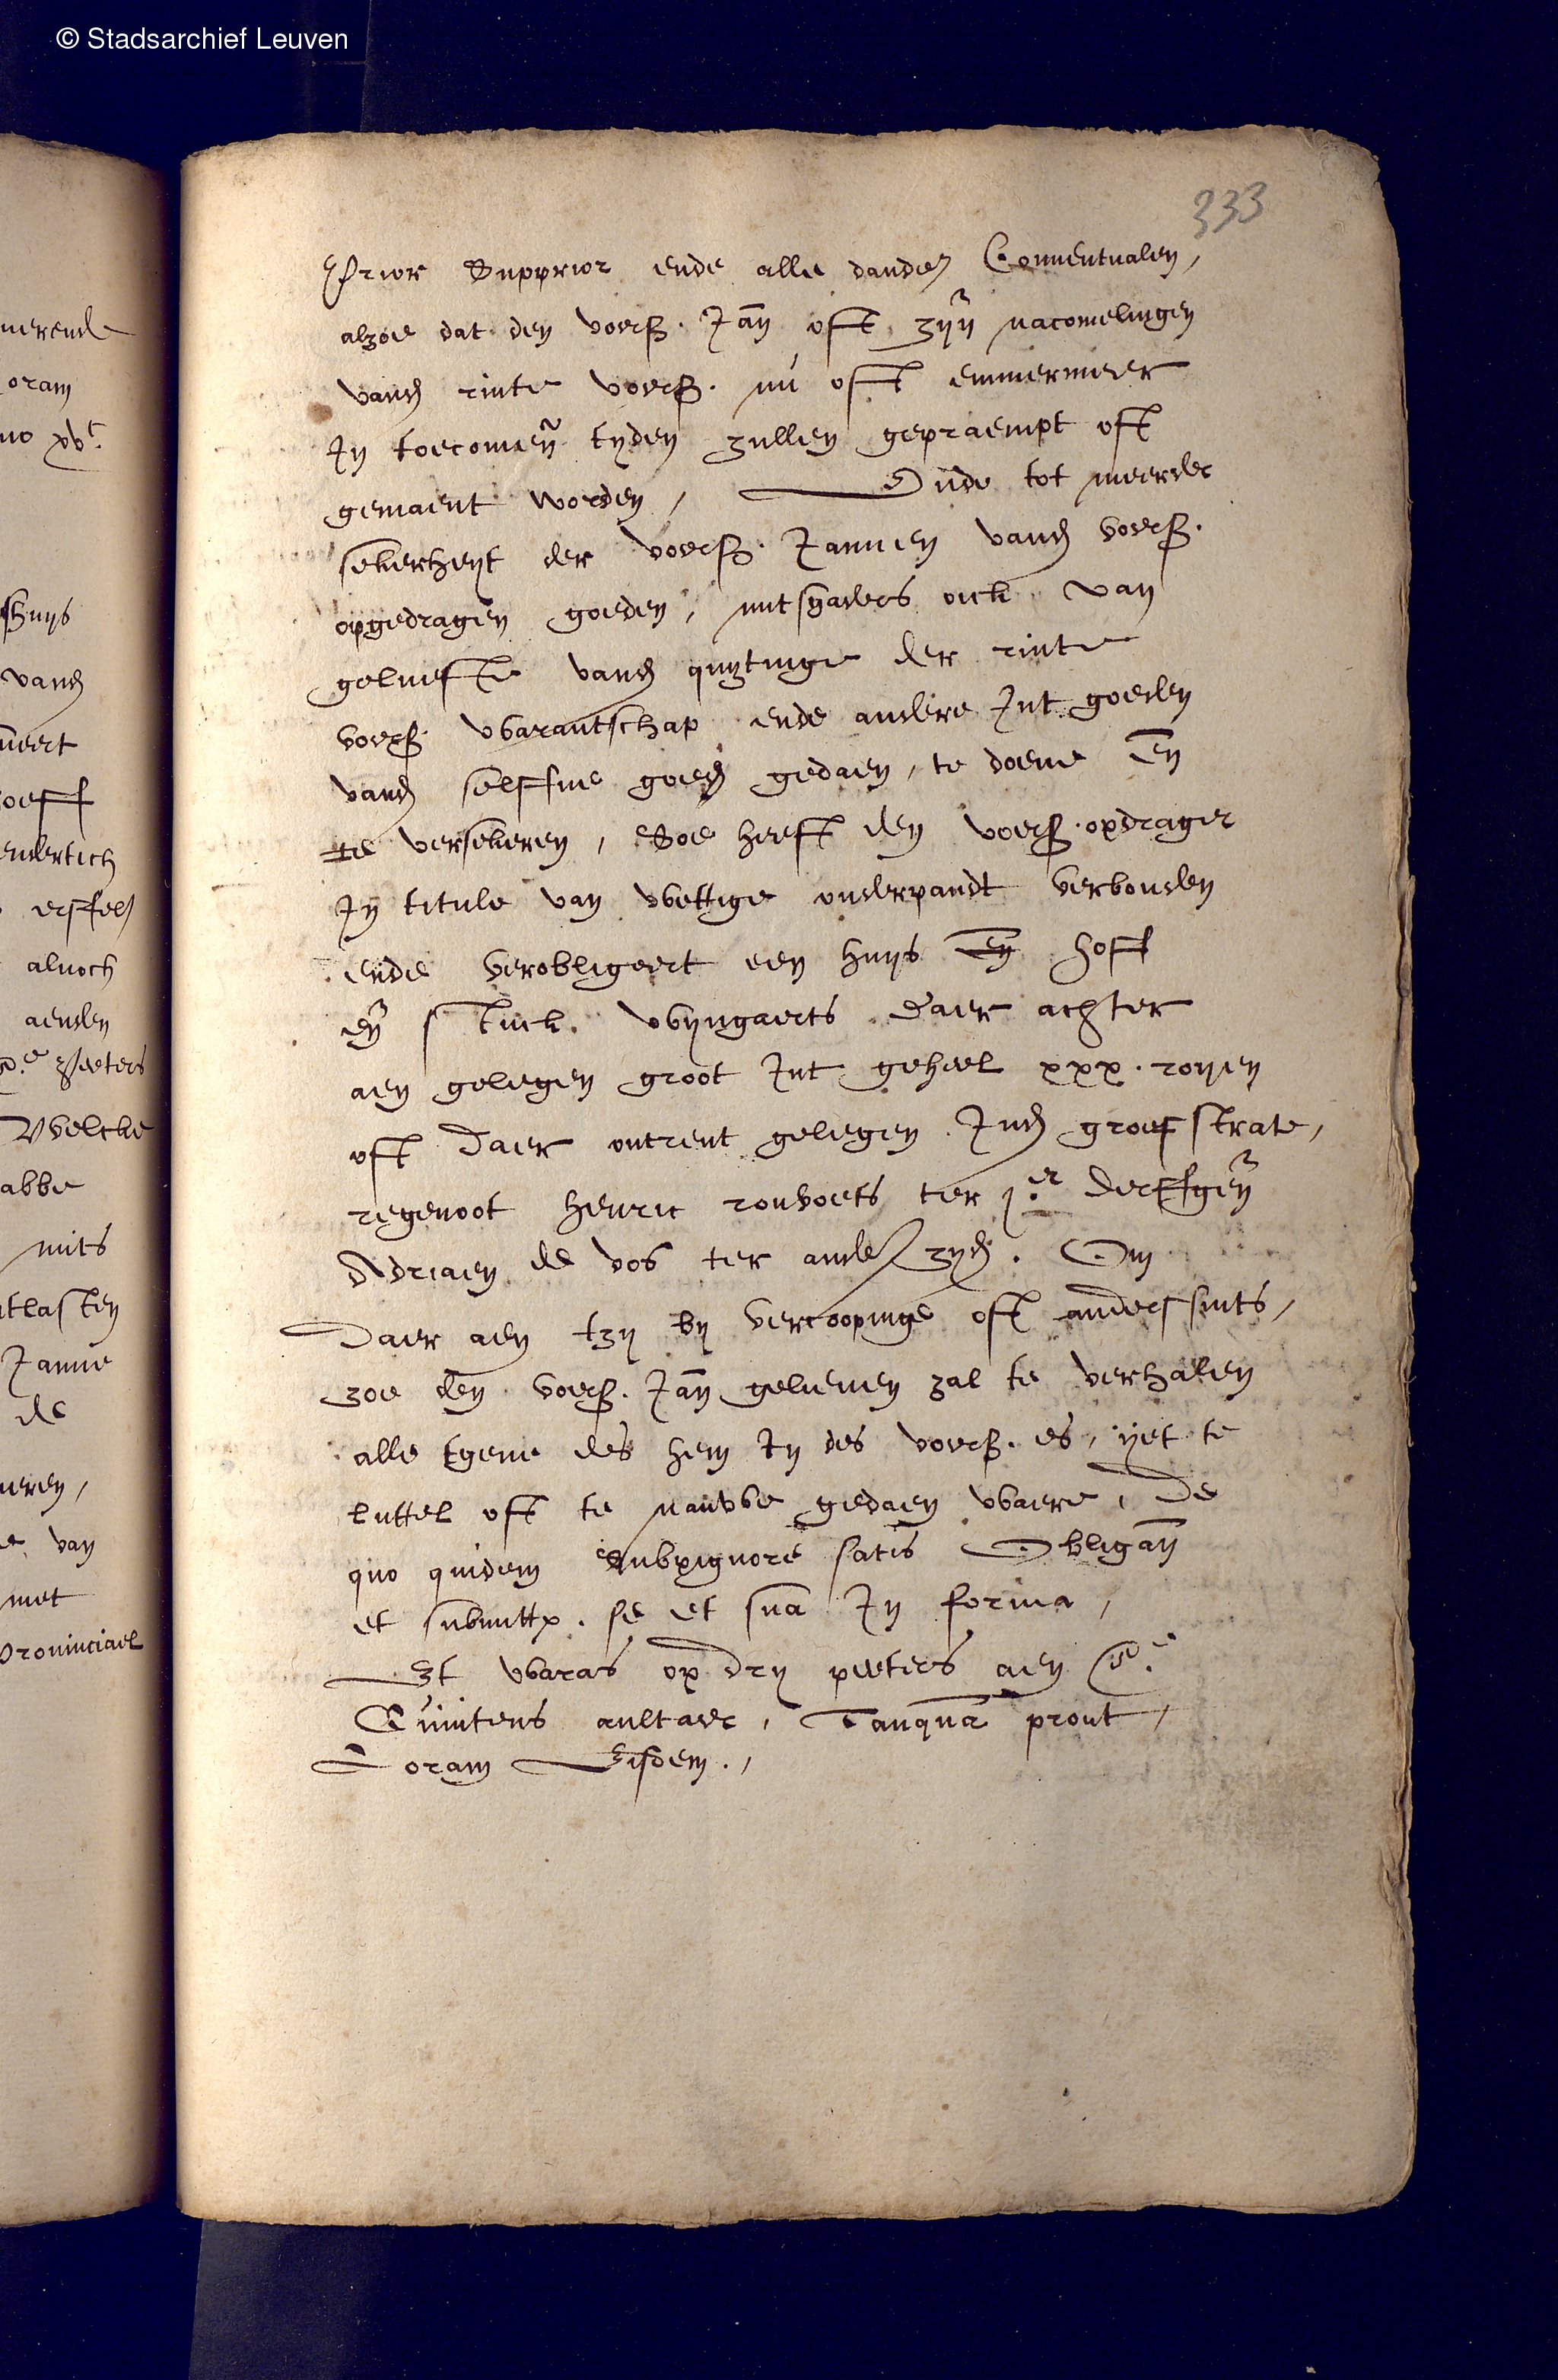 © Stadsarchief Leuven
333
Prior Supprior ende alle dander Conventualen,
alzoe dat den voers. Jan oft zijn nacomelingen
vand rinte voers. nu oft emmermeer
In toecomen tyden zullen gepraempt oft
gemaent worden, Ende tot meerder
sekerheyt der voers. Jannen vand voers.
opgedragen goeden, mitsgaders oick van
geluefte vand quytinge der rinte
voers. warantschap ende andere Int goeden
vand selffme goed gedaen, te doene en
te versekeren, Soe heeft den voers. opdrager
In titule van wettige onderpandt verbonden
ende verobligeert een huys en hoff
en stuck wyngaerts daer achter
aen gelegen groot Int geheel xxx. royen
oft daer ontrent gelegen Ind groefstrate,
regenoot henric rouvoets ter j.er derffgen
Adriaen de vos ter ander zyd. Om
daer aen tzy by vercoopinge oft anderssints,
zoe den voers. Jan gelieven zal te verhalen
alle tgene des hem In des voers. es, yet te
luttel oft te nauwe gedaen waere, De
quo quidem subpignore satis Obligan
et submitt. se et sua In forma,
Et waras op dry peeters aen St.
Quintens aultaer, Tanqua prout,
Coram Eisdem.,
nerende
oram
no xvc
shuys
vand
neert
oeff
endertich
erffel
alnoch
aenden
peeters
Welcke
abbe
mits
tlasten
Janne
de
eren,
e van
met
provinciael